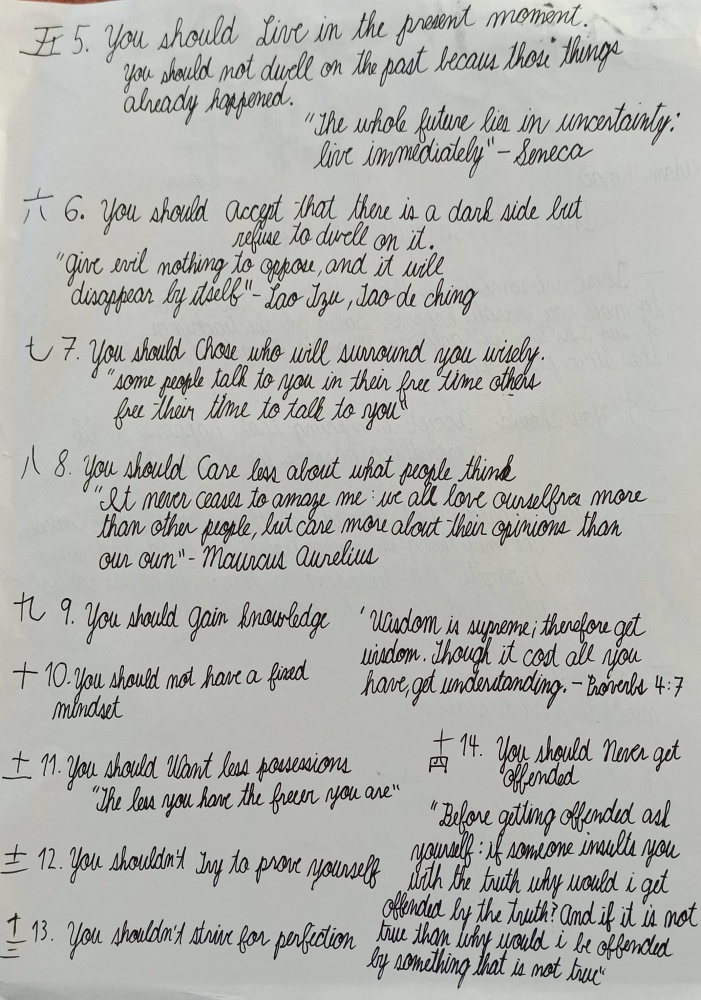 五 5. You should Live in the present moment.
You should not dwell on the past becaus those things
already happened.
"The whole future lies in uncertainty:
live immediately" - Seneca
六 6. You should accept that there is a dark side but
refuse to dwell on it.
"give evil nothing to oppose, and it will
disappear by itself" - Lao Tzu, Tao de ching
七 7. You should Chose who will surround you wisely.
"some people talk to you in their free time others
free their time to talk to you"
八 8. You should Care less about what people think
"It never ceases to amaze me: we all love ourselfres more
than other people, but care more about their opinions than
our own" - Maurcus Aurelius
九 9. You should gain knowledge
'Wisdom is supreme; therefore get
wisdom. Though it cost all you
have, get understanding. - Proverbs 4:7
十 10. You should not have a fixed
mindset
十一 11. You should Want less possessions
"The less you have the freeer you are"
十二 12. You shouldn't Try to prove yourself
十三 13. You shouldn't strive for perfection
十四 14. You should Never get
offended
"Before getting offended ask
yourself: if someone insults you
with the truth why would i get
offended by the truth? And if it is not
true than why would i be offended
by something that is not true"